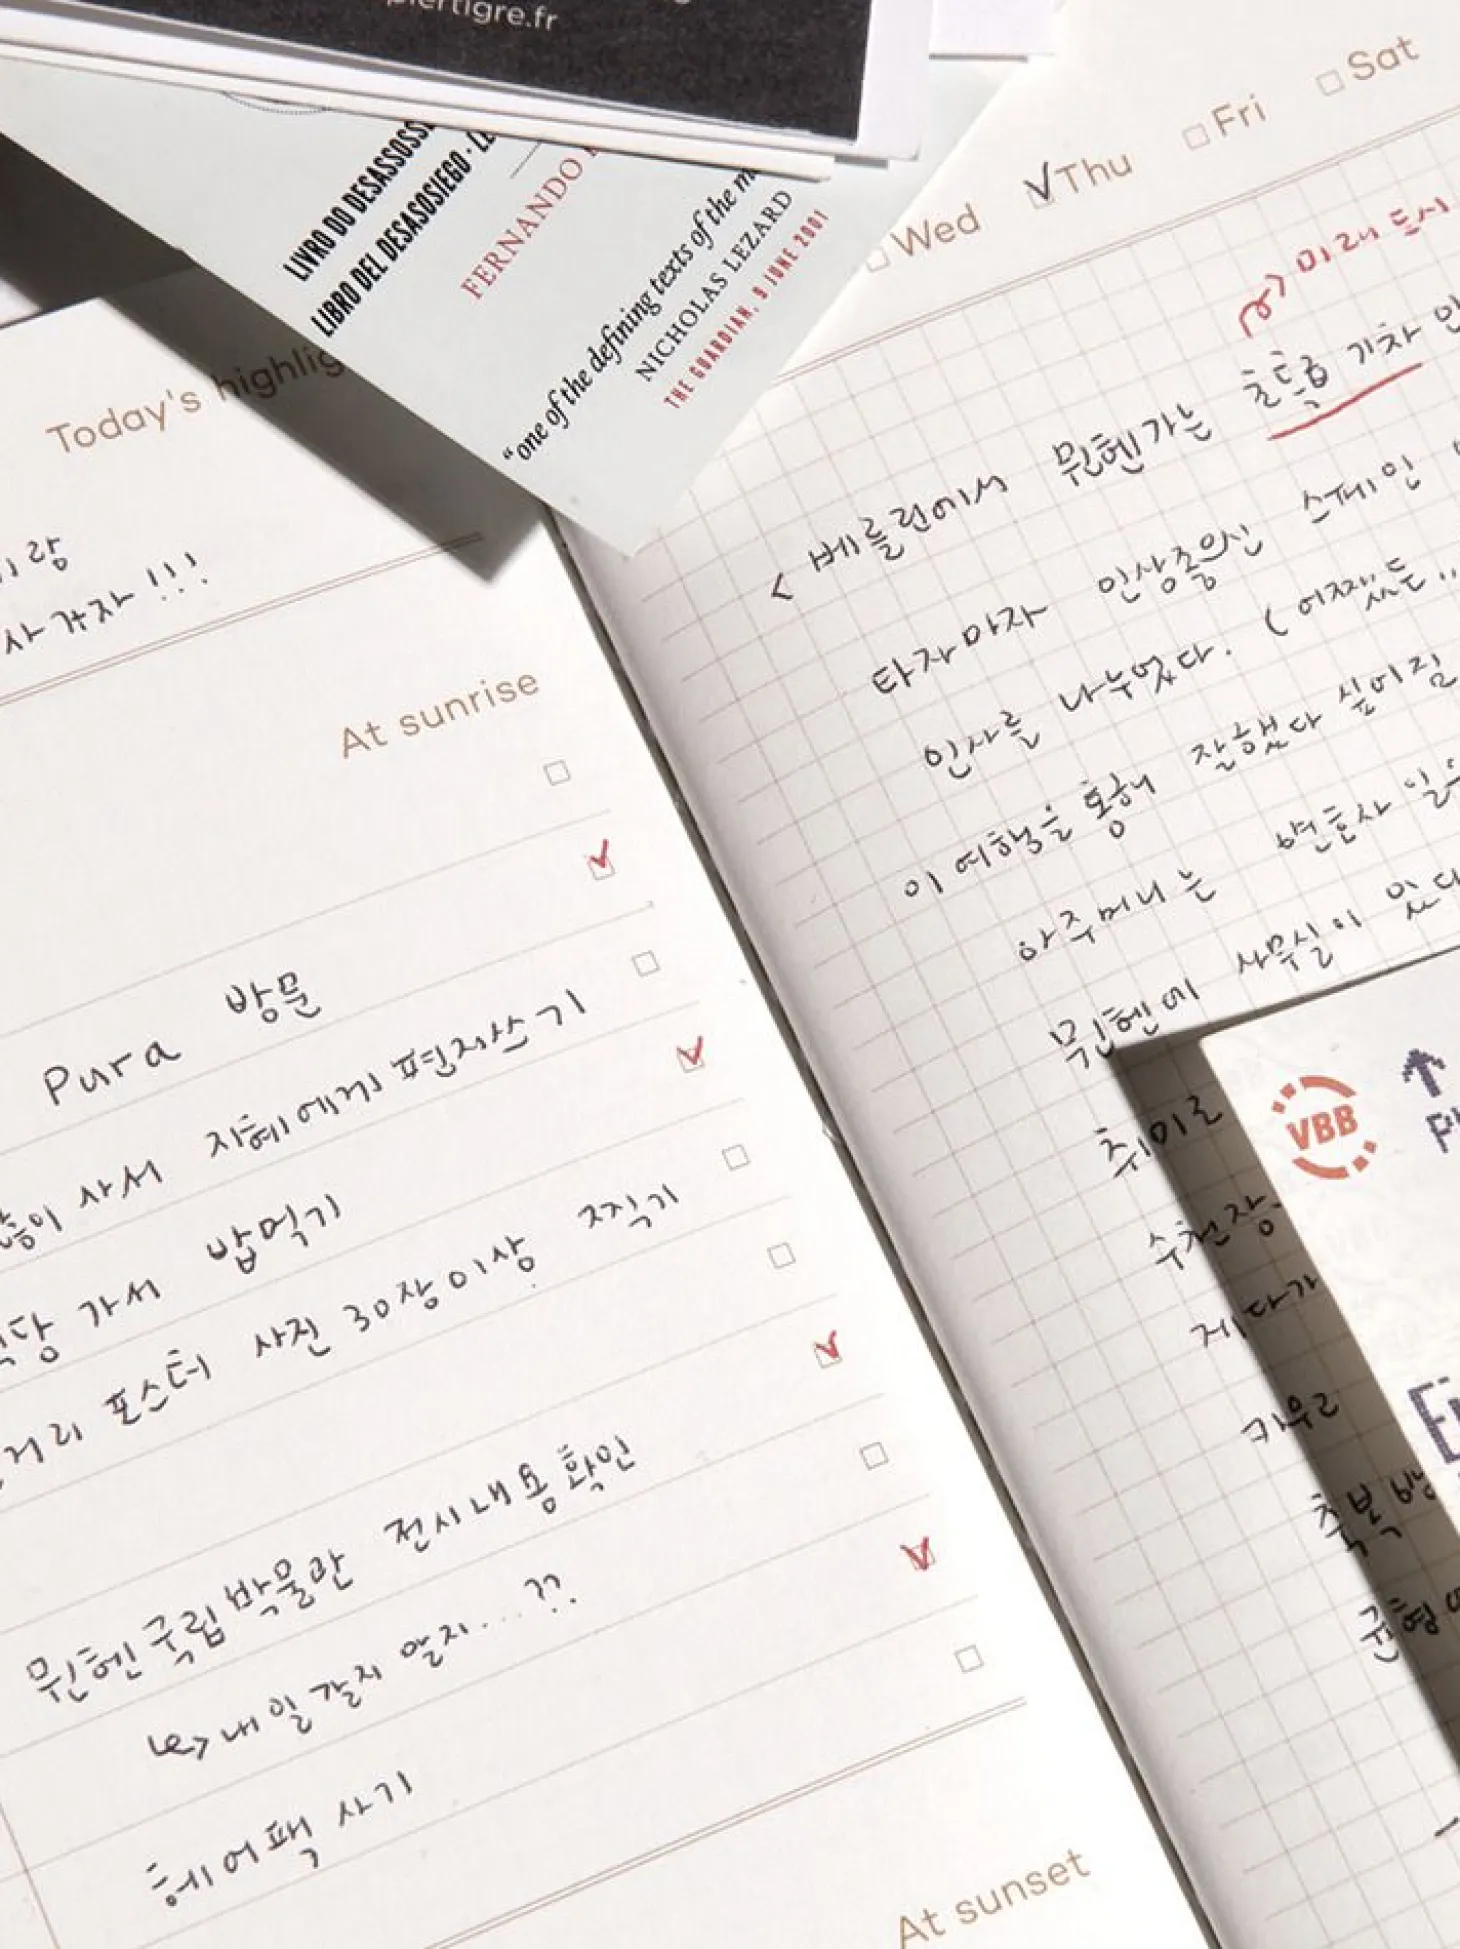 piertigre.fr
LIVRO DO DESASSOSSE
LIBRO DEL DESASOSIEGO · LE
FERNANDO
"one of the defining texts of the m
NICHOLAS LEZARD
THE GUARDIAN, 9 JUNE 2001
Today's highlig
이랑
사 가자!!!
At sunrise
Pura 방문
많이 사서 지혜에게 편지쓰기
식당 가서 밥먹기
거리 포스터 사진 30장이상 찍기
뮌헨 국립박물관 전시내용확인
→ 내일 갈지 말지...??
헤어팩 사기
At sunset
Wed
Thu
Fri
Sat
→ 미래 도시
< 베를린에서 뮌헨가는 초특급 기차 안
타자마자 인상좋으신 스페인
인사를 나누었다. (어쨌든...
이 여행을 통해 잘했다 싶어질
아주머니는 변호사 일
뮌헨에 사무실이 있다
취미로
수천장
게다가
키우고
축복
균형
VBB
↑